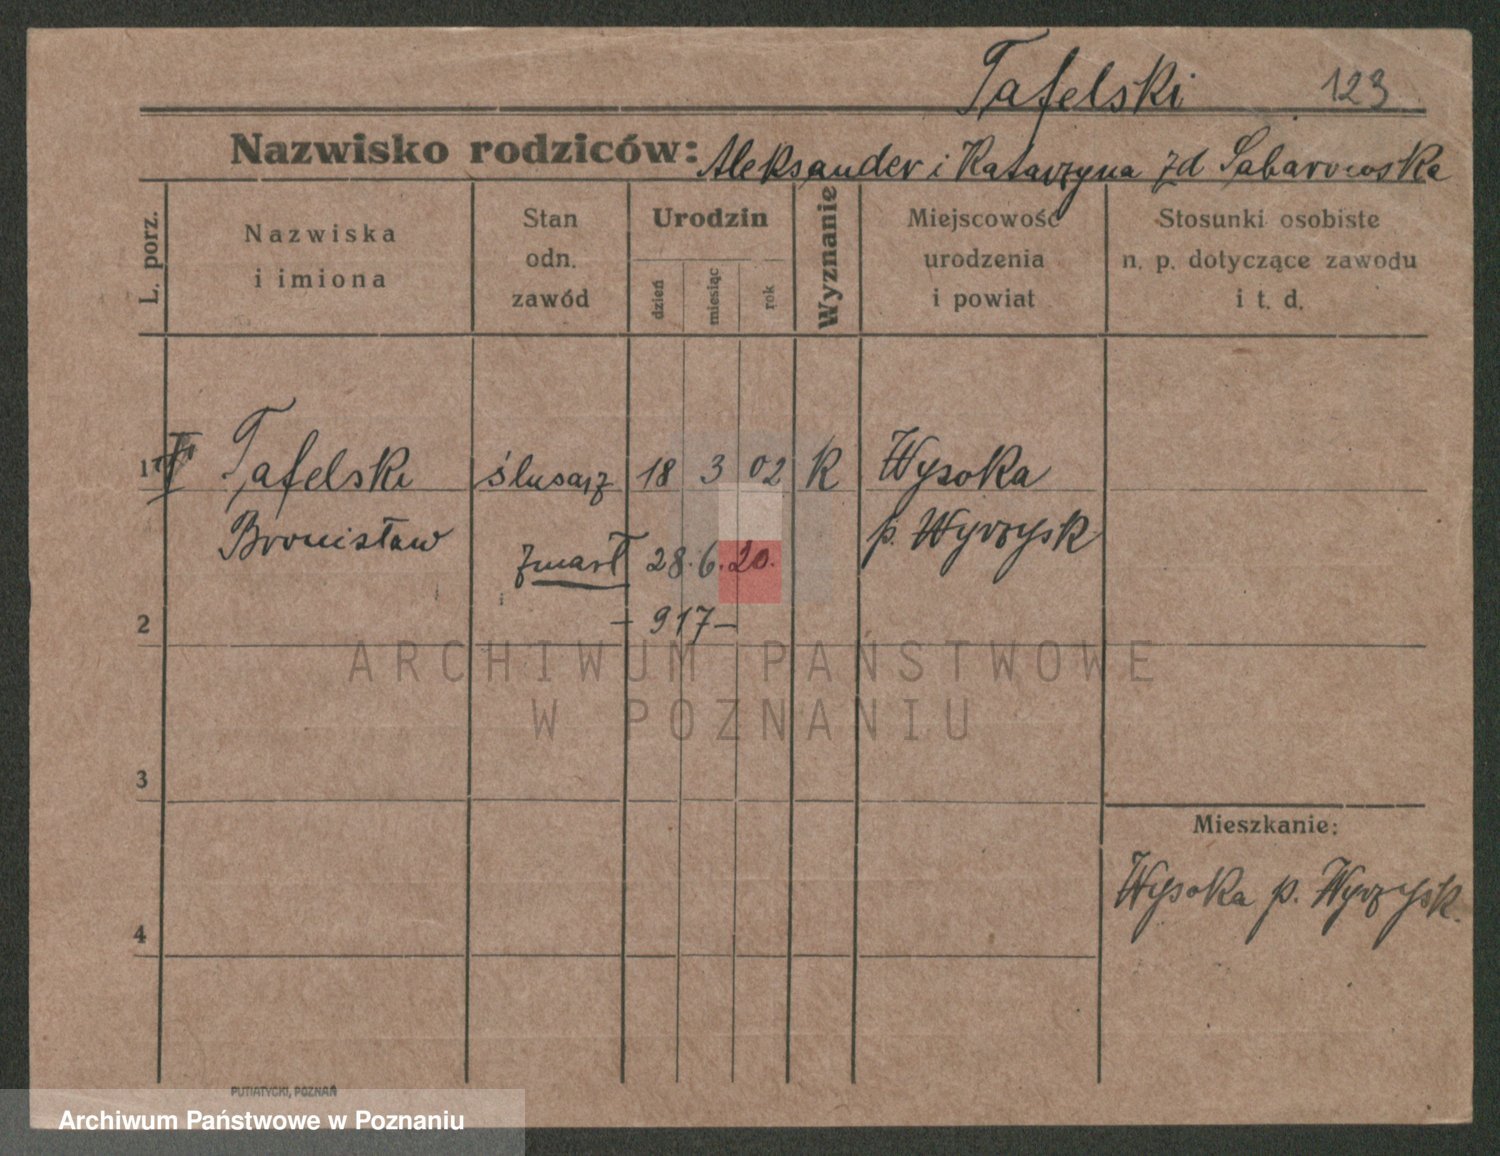 Tafelski 123
Nazwisko rodziców: Aleksander i Katarzyna zd Sabarowska
L. porz.
Nazwiska
i imiona
Stan
odn.
zawód
Urodzin
dzień
miesiąc
rok
Wyznanie
Miejscowość
urodzenia
i powiat
Stosunki osobiste
n. p. dotyczące zawodu
i t. d.
1 Tafelski ślusarz 18 3 02 k Wysoka
Bronisław p. Wyrzysk
zmarł 28.6.20.
2 – 917 –
ARCHIWUM PAŃSTWOWE
W POZNANIU
3
Mieszkanie:
Wysoka p. Wyrzysk.
4
PUTIATYCKI, POZNAŃ
Archiwum Państwowe w Poznaniu